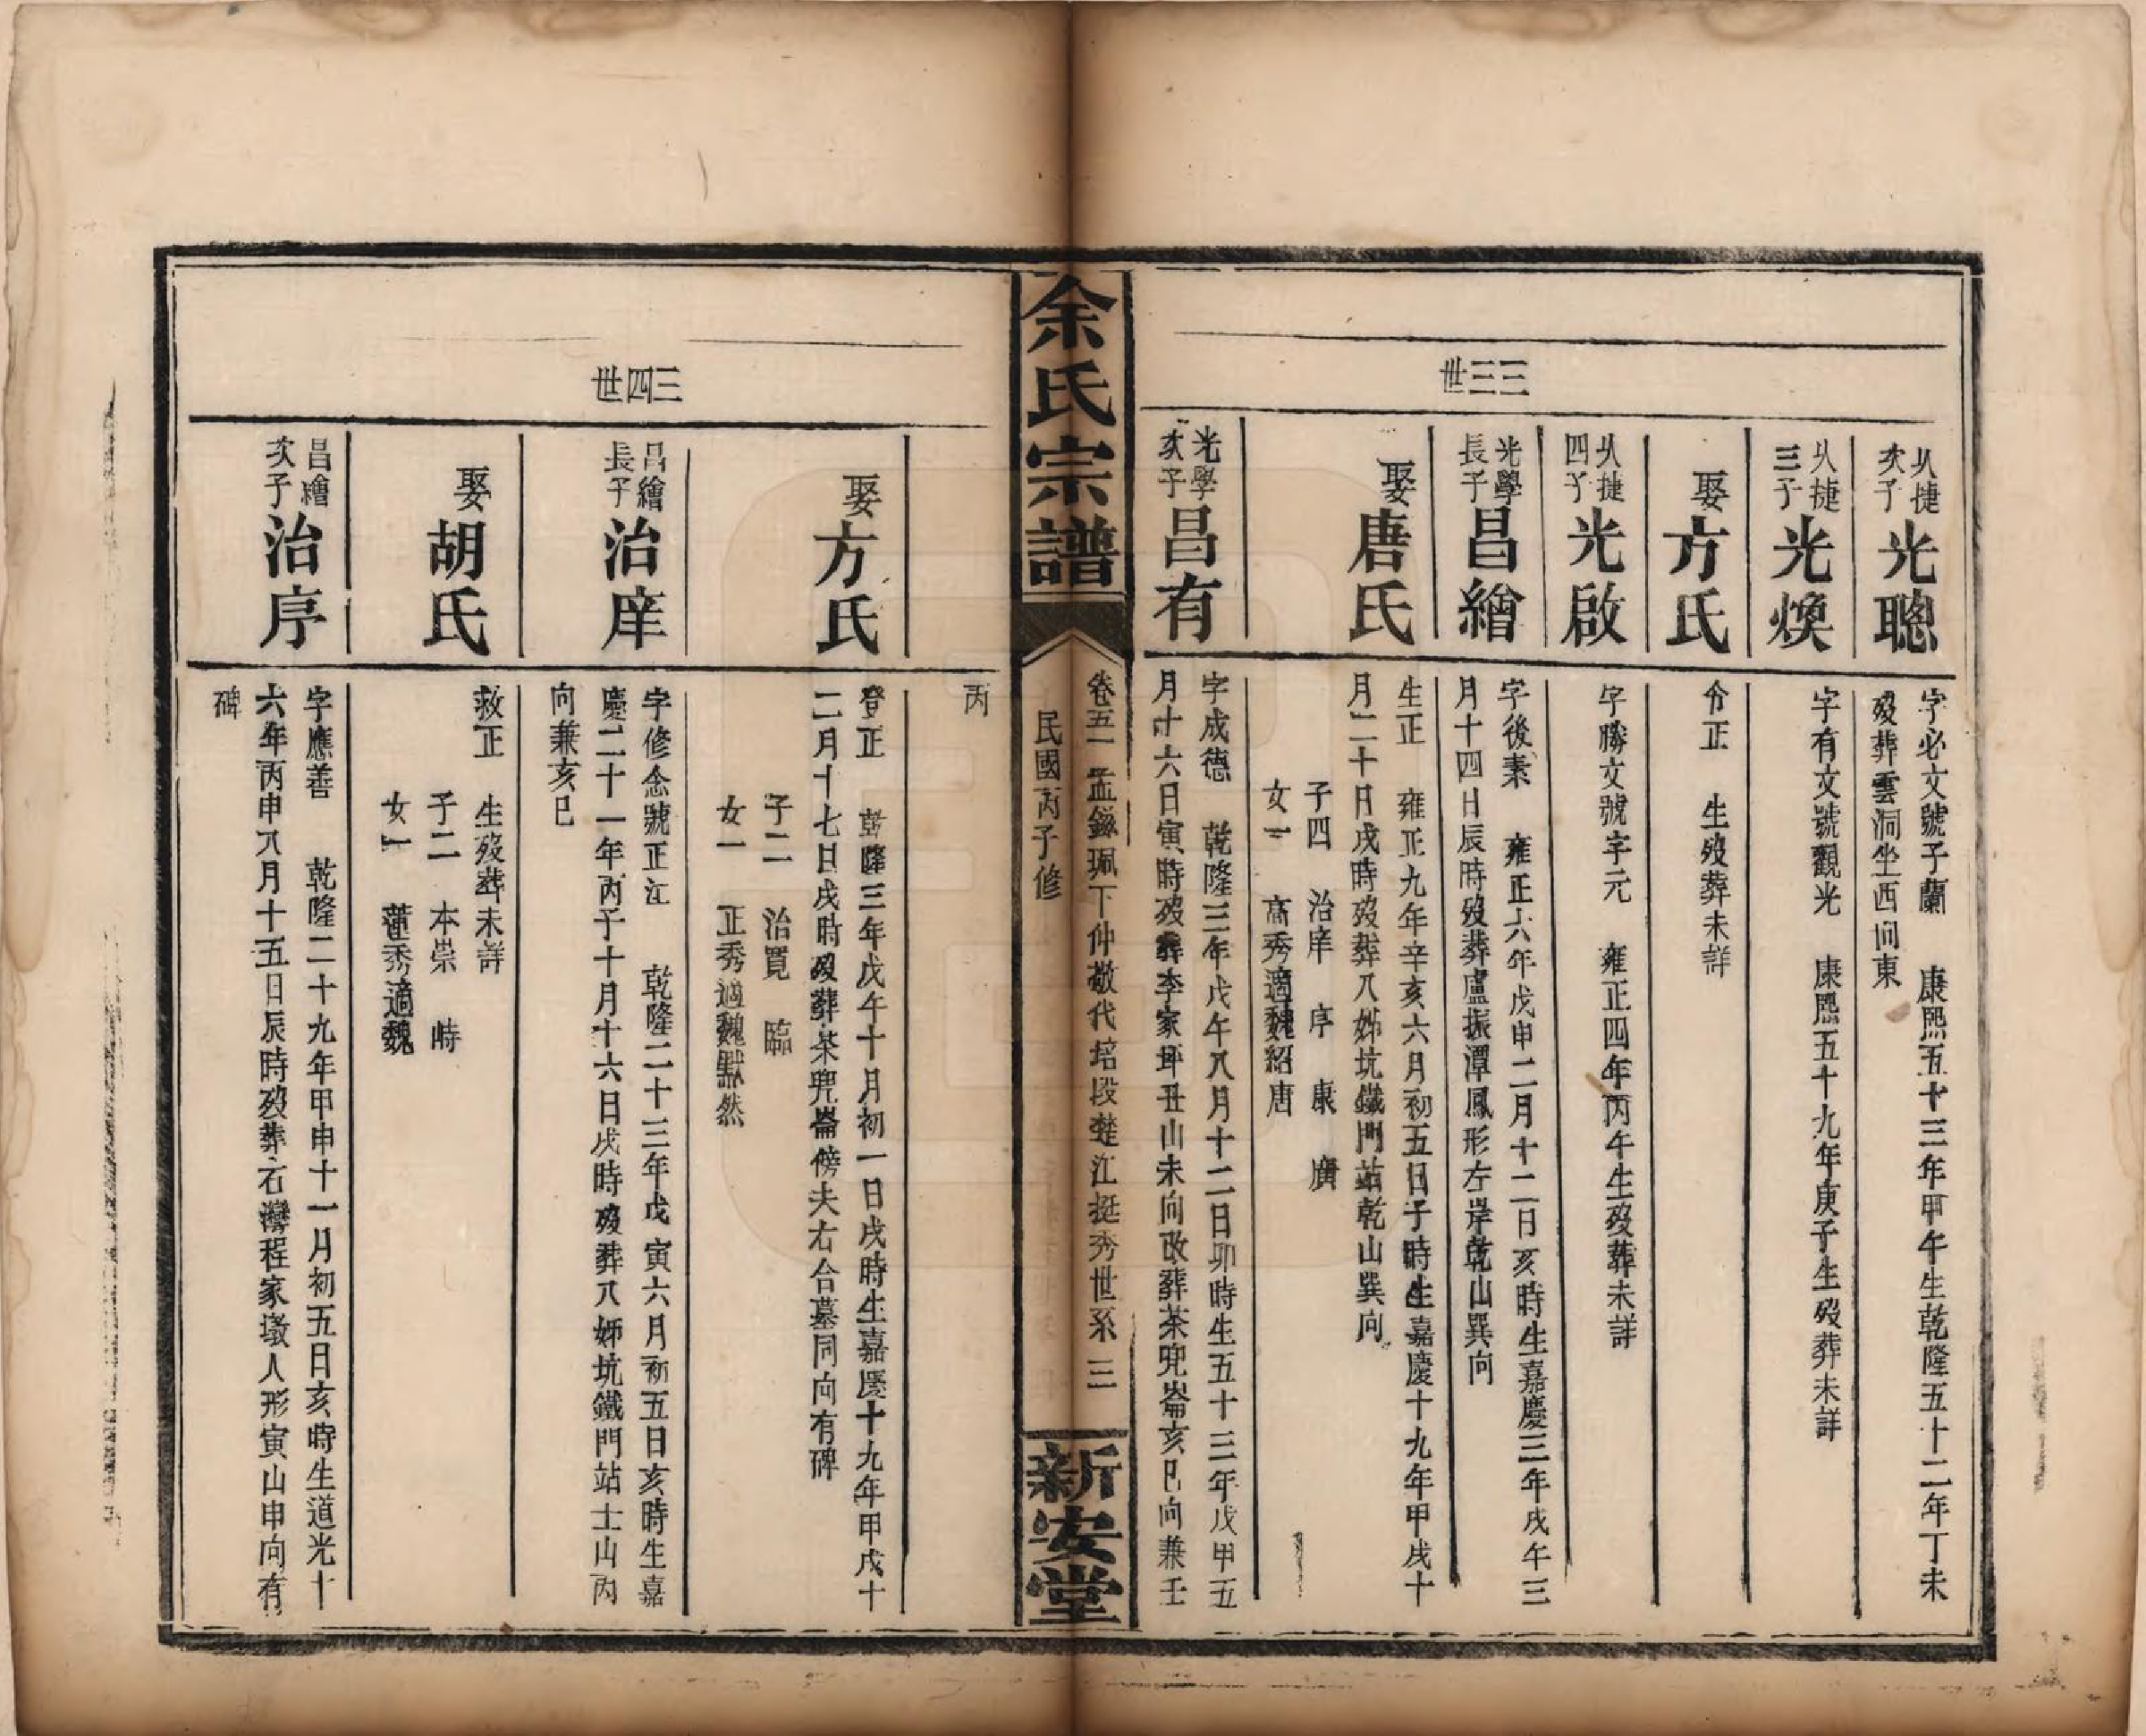 三三世
从捷次子 光聰
字必文號子蘭 康熙五十三年甲午生乾隆五十二年丁未
歿葬雲洞坐西向東
从捷三子 光煥
字有文號觀光 康熙五十九年庚子生歿葬未詳
娶 方氏
令正 生歿葬未詳
从捷四子 光啟
字勝文號字元 雍正四年丙午生歿葬未詳
光學長子 昌繪
字後素 雍正六年戊申二月十二日亥時生嘉慶三年戊午三
月十四日辰時歿葬盧振潭鳳形左岸乾山巽向
娶 唐氏
生正 雍正九年辛亥六月初五日子時生嘉慶十九年甲戌十
月二十日戌時歿葬八姊坑鐵門站乾山巽向
子四 治庠 序 康 廣
女一 高秀適魏紹唐
光學次子 昌有
字成德 乾隆三年戊午八月十二日卯時生五十三年戊甲五
月十六日寅時歿葬李家坪丑山未向改葬茶兜崙亥巳向兼壬
余氏宗譜
卷五一 孟錄珮下仲敬代培段楚江挺秀世系 三
民國丙子修
新安堂
丙
三四世
娶 方氏
登正 乾隆三年戊午十月初一日戌時生嘉慶十九年甲戌十
二月十七日戌時歿葬茶兜崙傍夫右合墓同向有碑
子二 治寬 臨
女一 正秀適魏默然
昌繪長子 治庠
字修念號正江 乾隆二十三年戊寅六月初五日亥時生嘉
慶二十一年丙子十月十六日戌時歿葬八姊坑鐵門站士山丙
向兼亥巳
娶 胡氏
救正 生歿葬未詳
子二 本崇 時
女一 蓮秀適魏
昌繪次子 治序
字應善 乾隆二十九年甲申十一月初五日亥時生道光十
六年丙申八月十五日辰時歿葬石灣程家墩人形寅山申向有
碑